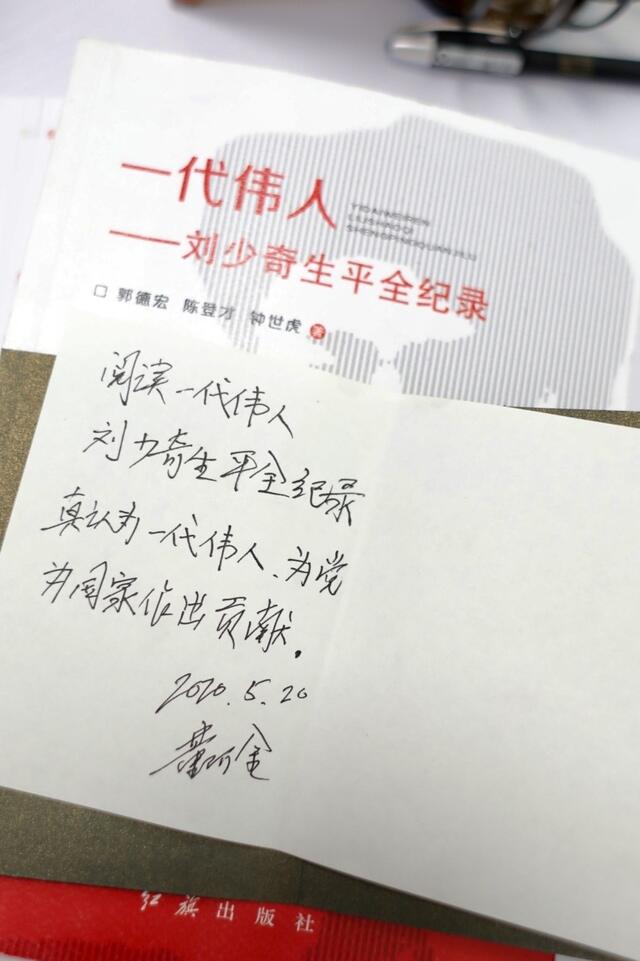 一代伟人
YIDAIWEIREN
LIUSHAOQI
SHENGPINGQUANJILU
——刘少奇生平全纪录
□ 郭德宏 陈登才 钟世虎 著
阅读一代伟人
刘少奇生平全纪录
真认为一代伟人、为党
为国家作出贡献.
2020.5.20
金
红旗出版社